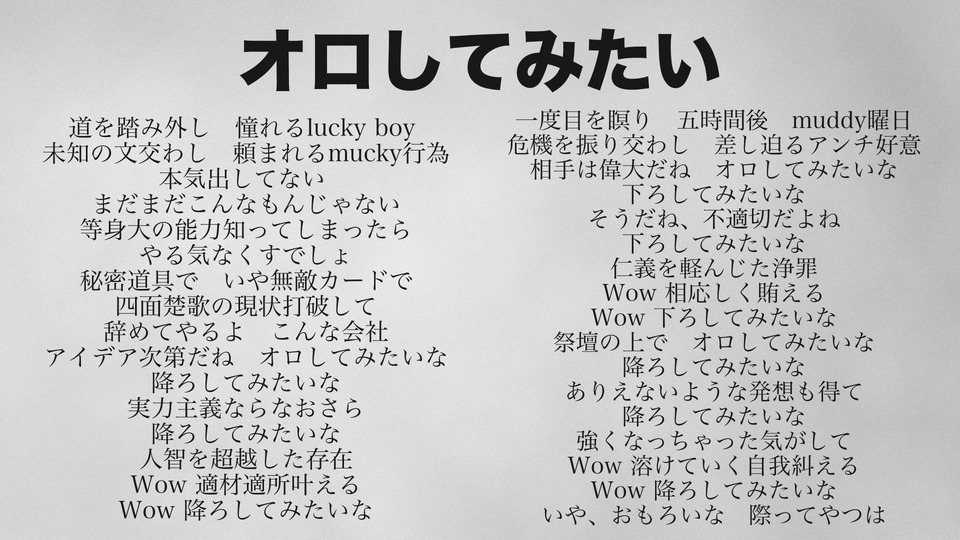 オロしてみたい
道を踏み外し　憧れるlucky boy
未知の文交わし　頼まれるmucky行為
本気出してない
まだまだこんなもんじゃない
等身大の能力知ってしまったら
やる気なくすでしょ
秘密道具で　いや無敵カードで
四面楚歌の現状打破して
辞めてやるよ　こんな会社
アイデア次第だね　オロしてみたいな
降ろしてみたいな
実力主義ならなおさら
降ろしてみたいな
人智を超越した存在
Wow 適材適所叶える
Wow 降ろしてみたいな
一度目を瞑り　五時間後　muddy曜日
危機を振り交わし　差し迫るアンチ好意
相手は偉大だね　オロしてみたいな
下ろしてみたいな
そうだね、不適切だよね
下ろしてみたいな
仁義を軽んじた浄罪
Wow 相応しく賄える
Wow 下ろしてみたいな
祭壇の上で　オロしてみたいな
降ろしてみたいな
ありえないような発想も得て
降ろしてみたいな
強くなっちゃった気がして
Wow 溶けていく自我糾える
Wow 降ろしてみたいな
いや、おもろいな　際ってやつは